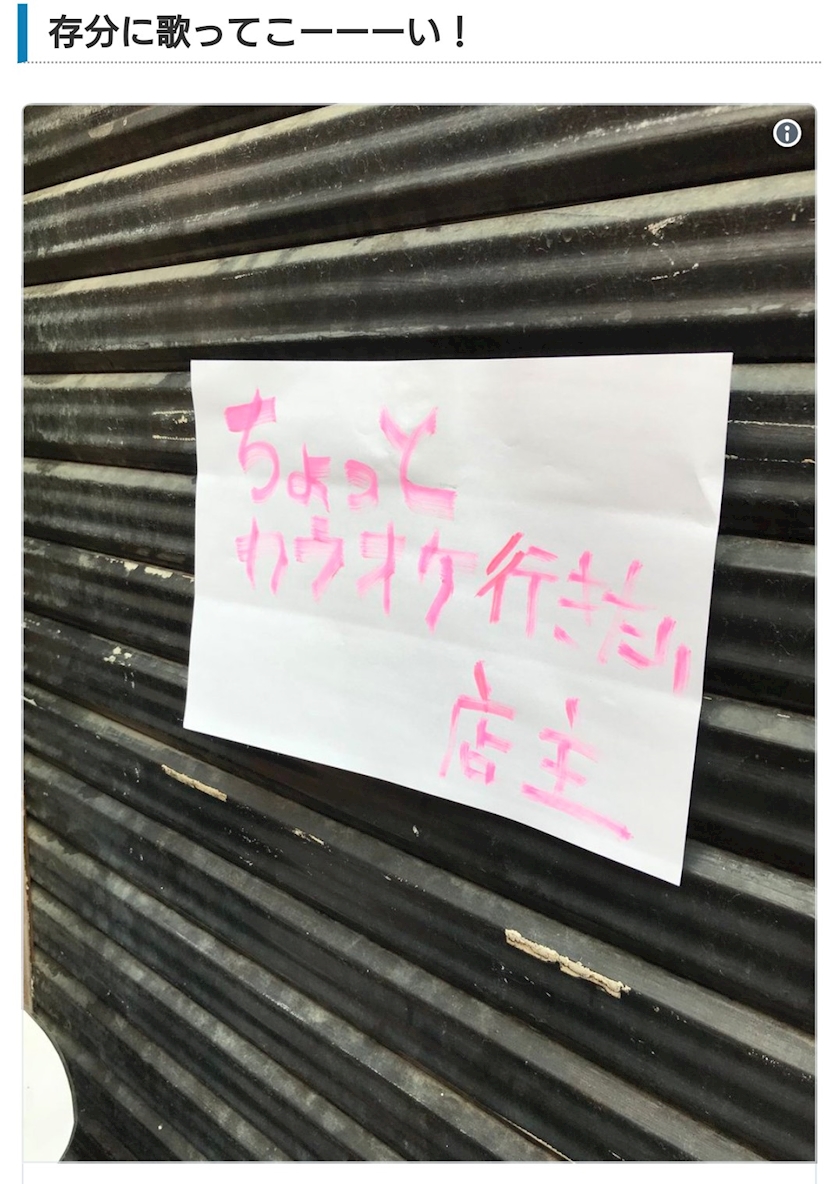 存分に歌ってこーーーい！
ちょっと
カラオケ行きたい
店主